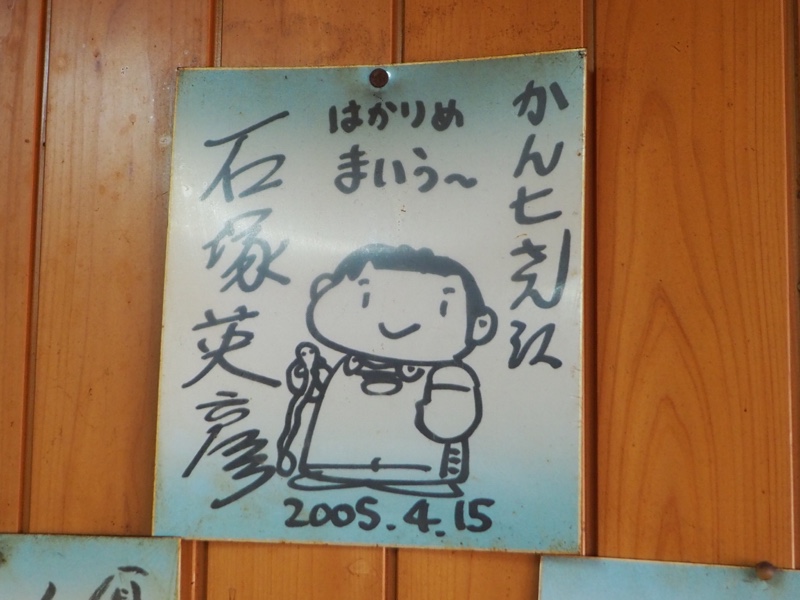 かん七さん江
はかりめ
まいう〜
石塚英彦
2005.4.15